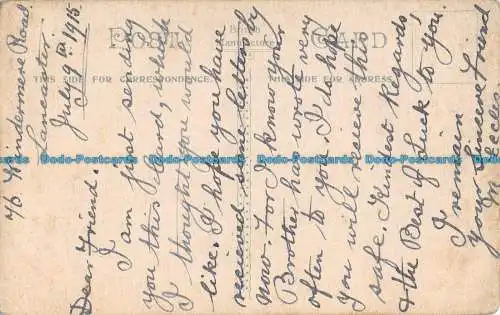 76 Windermere Road
Lancaster
July 9th 1915
Dear Friend.
I am just sending
you this card, which
I thought you would
like. I hope you have
received some letters by
now. For I know your
Brother has wrote very
often to you. I do hope
you will recieve this
safe. Kindest Regards
& the Best of Luck to You.
I remain
Your Sincere Friend
POST CARD
British
Manufacture
THIS SIDE FOR CORRESPONDENCE
THIS SIDE FOR ADDRESS.
Dodo-Postcards Dodo-Postcards Dodo-Postcards Dodo-Postcards